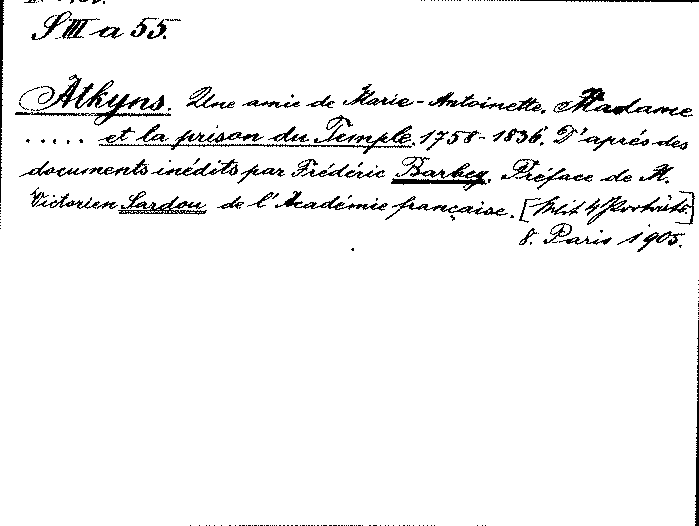 S III a 55.
Atkyns. Une amie de Marie-Antoinette. Madame
..... et la prison du Temple. 1758-1836. D'aprés des
documents inédits par Frédéric Barbey. Préface de M.
Victorien Sardou de l'Académie française. [Mit 4 Portraits.]
8. Paris 1905.